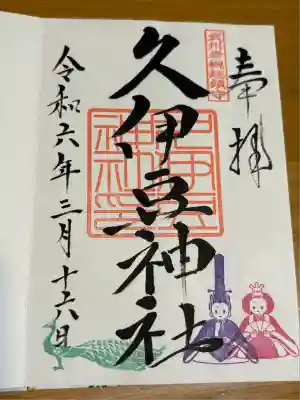 奉拝
久伊豆神社
令和六年三月十六日